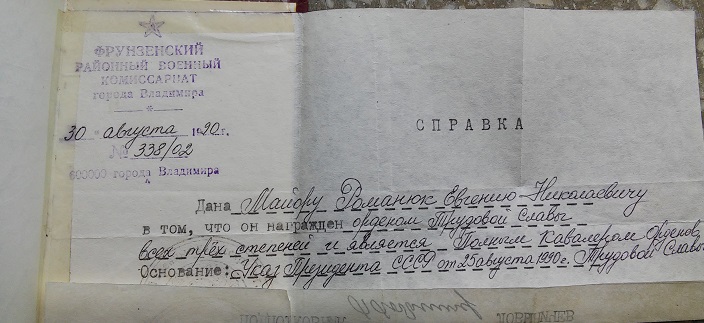 ФРУНЗЕНСКИЙ
РАЙОННЫЙ ВОЕННЫЙ
КОМИССАРИАТ
города Владимира
30 августа 1990 г.
№ 338/02
600000 города Владимира
СПРАВКА
Дана Майору Романюк Евгению Николаевичу
в том, что он награжден орденом Трудовой Славы
всех трёх степеней и является Полным Кавалером Орденов
Основание: Указ Президента СССР от 25 августа 1990 г. Трудовой Славы